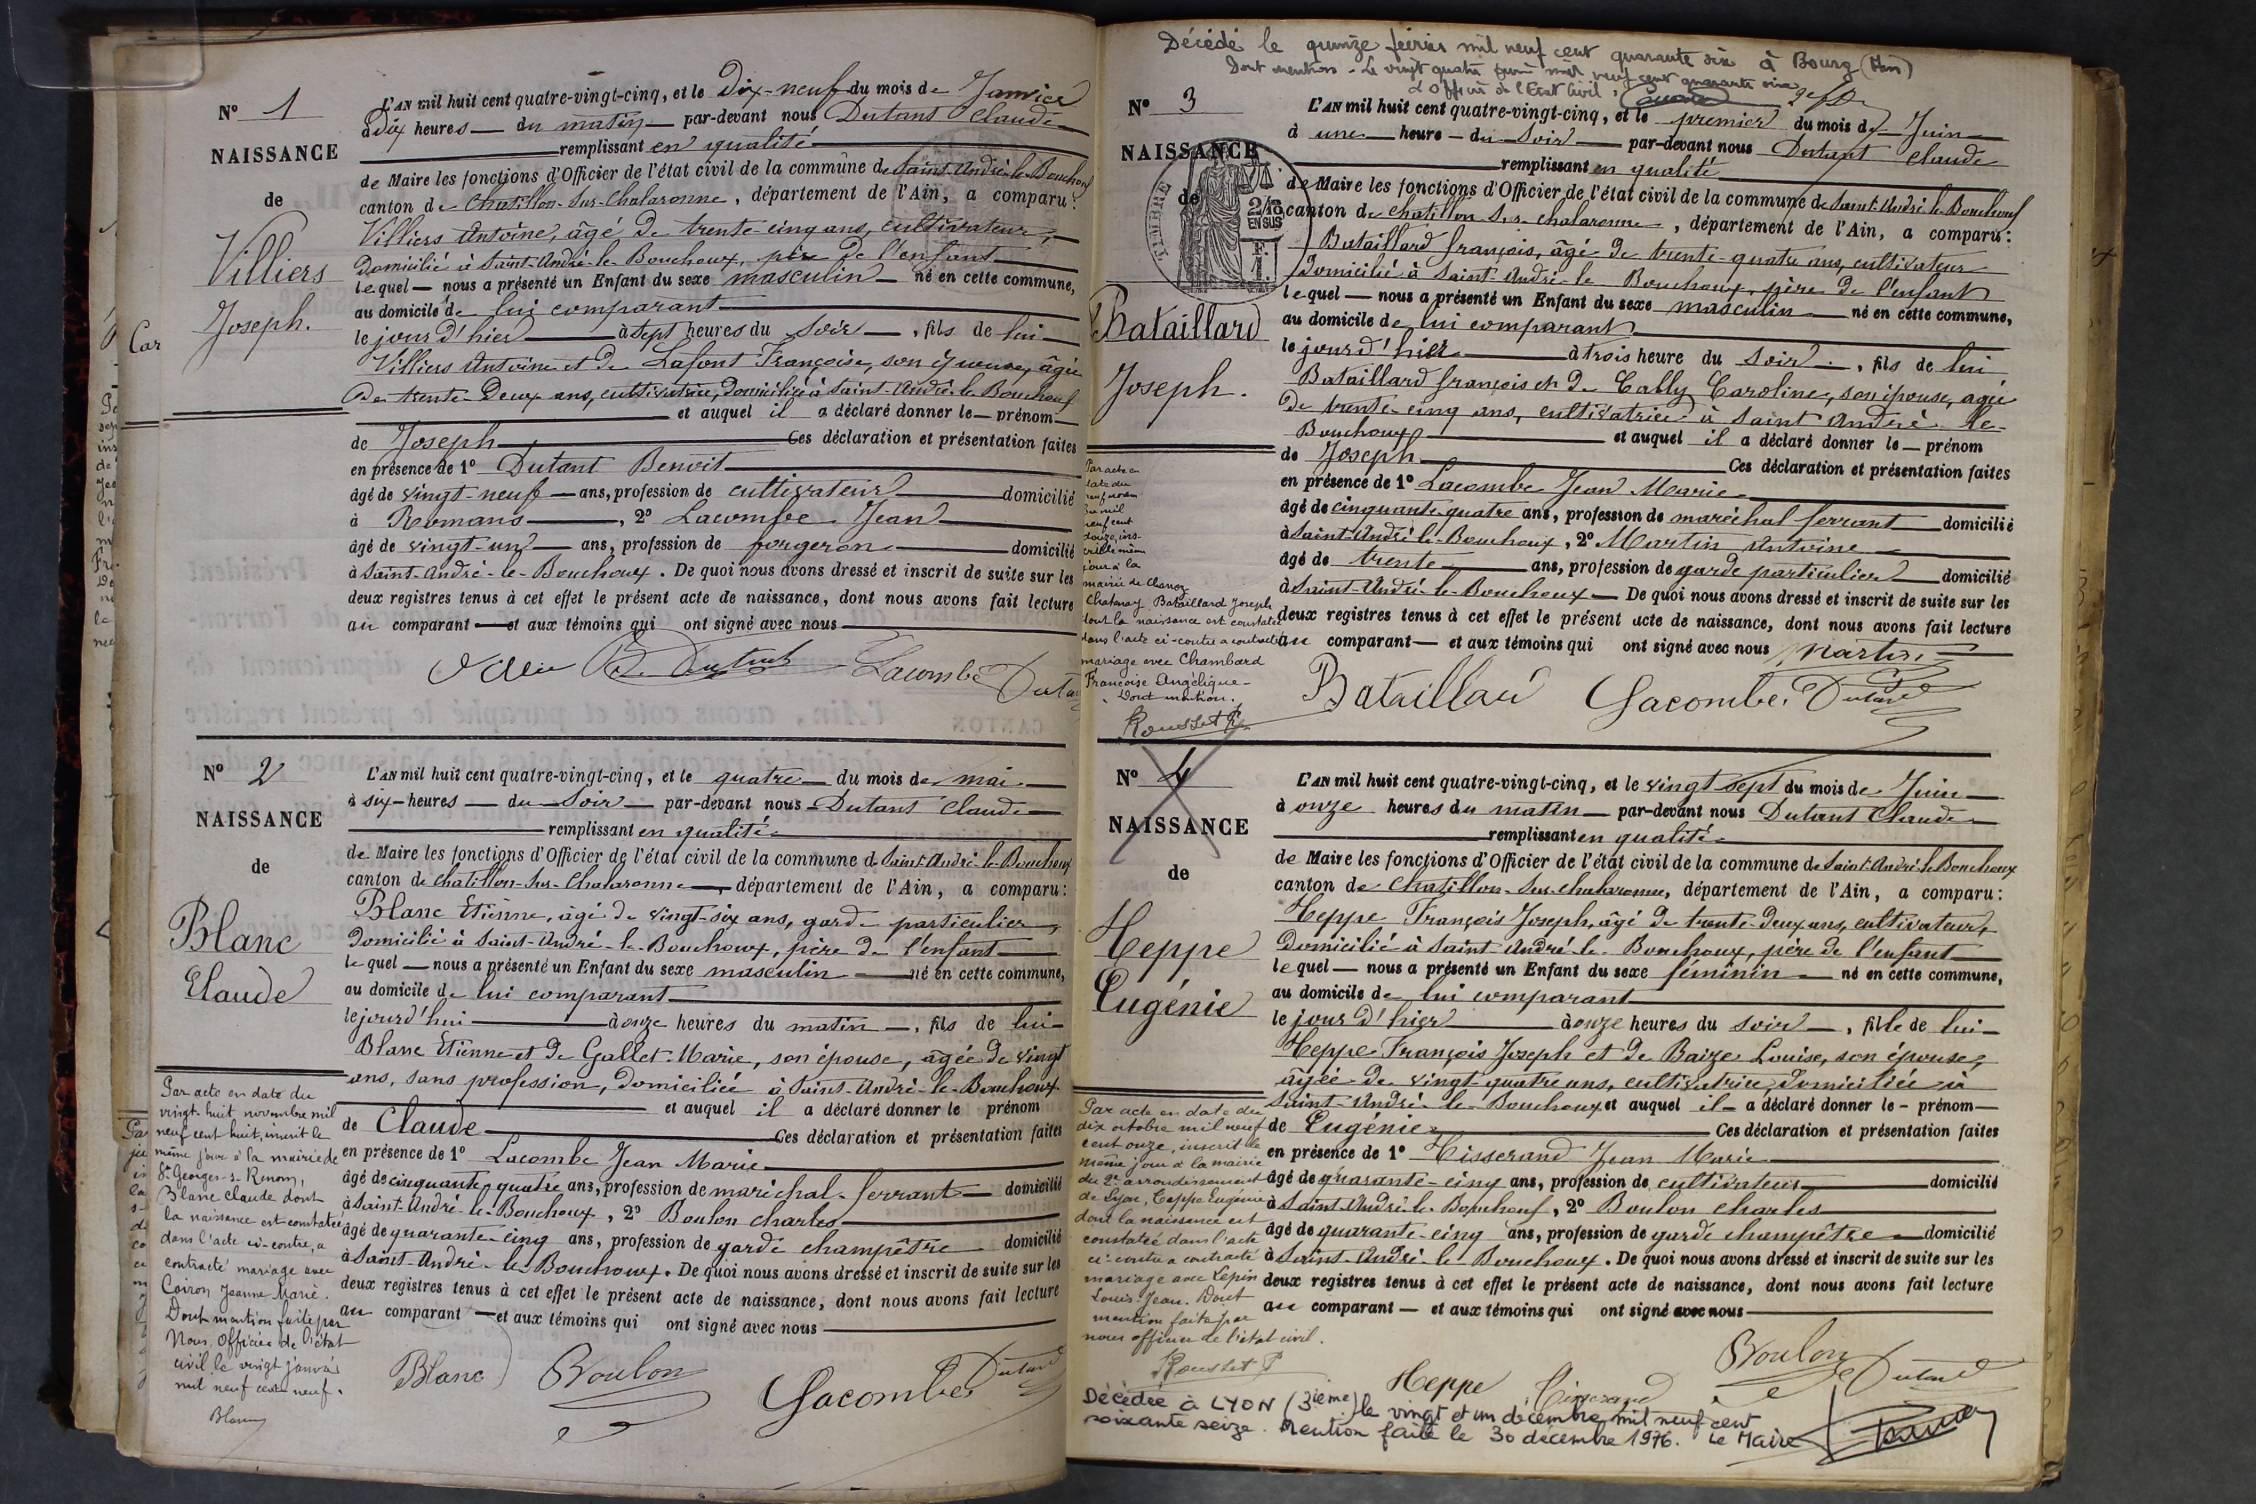 N° 1
NAISSANCE
de
Villiers
Joseph.
L'AN mil huit cent quatre-vingt-cinq, et le Dix-neuf du mois de Janvier
à Dix heures du matin par-devant nous Dutant Claude
remplissant en qualité
de Maire les fonctions d'Officier de l'état civil de la commune de Saint-André-le-Bouchoux
canton de Chatillon-Sur-Chalaronne, département de l'Ain, a comparu :
Villiers Antoine, âgé de trente-cinq ans, cultivateur,
domicilié à Saint-André-le-Bouchoux, père de l'enfant
lequel nous a présenté un Enfant du sexe masculin né en cette commune,
au domicile de lui comparant
le jour d'hier à sept heures du soir, fils de lui
Villiers Antoine et de Lafont Françoise, son épouse, âgée
de trente-deux ans, cultivatrice, domiciliée à Saint-André-le-Bouchoux
et auquel il a déclaré donner le prénom
de Joseph Ces déclaration et présentation faites
en présence de 1° Dutant Benoit
âgé de vingt-neuf ans, profession de cultivateur domicilié
à Romans, 2° Lacombe Jean
âgé de vingt-un ans, profession de forgeron domicilié
à Saint-André-le-Bouchoux. De quoi nous avons dressé et inscrit de suite sur les
deux registres tenus à cet effet le présent acte de naissance, dont nous avons fait lecture
au comparant et aux témoins qui ont signé avec nous
B. Dutant Lacombe
N° 2
NAISSANCE
de
Blanc
Claude
L'AN mil huit cent quatre-vingt-cinq, et le quatre du mois de mai
à six heures du Soir par-devant nous Dutant Claude
remplissant en qualité
de Maire les fonctions d'Officier de l'état civil de la commune de Saint-André-le-Bouchoux
canton de Chatillon-Sur-Chalaronne, département de l'Ain, a comparu :
Blanc Etienne, âgé de vingt-six ans, garde particulier,
domicilié à Saint-André-le-Bouchoux, père de l'enfant
lequel nous a présenté un Enfant du sexe masculin né en cette commune,
au domicile de lui comparant
le jourd'hui à onze heures du matin, fils de lui
Blanc Etienne et de Gallet Marie, son épouse, âgée de vingt
ans, sans profession, domiciliée à Saint-André-le-Bouchoux
et auquel il a déclaré donner le prénom
de Claude Ces déclaration et présentation faites
en présence de 1° Lacombe Jean Marie
âgé de cinquante-quatre ans, profession de maréchal-ferrant domicilié
à Saint-André-le-Bouchoux, 2° Boulon Charles
âgé de quarante-cinq ans, profession de garde champêtre domicilié
à Saint-André-le-Bouchoux. De quoi nous avons dressé et inscrit de suite sur les
deux registres tenus à cet effet le présent acte de naissance, dont nous avons fait lecture
au comparant et aux témoins qui ont signé avec nous
Blanc Boulon Lacombe Dutant
Par acte en date du
vingt-huit novembre mil
neuf cent huit, inscrit le
même jour à la mairie de
St Georges-s-Renom,
Blanc Claude dont
la naissance est constatée
dans l'acte ci-contre, a
contracté mariage avec
Coiron Jeanne Marie.
Dont mention faite par
Nous, Officier de l'état
civil le vingt janvier
mil neuf cent neuf.
Décédé le quinze février mil neuf cent quarante six à Bourg (Ain)
Dont mention - Le vingt quatre mil neuf cent quarante six
L'Officier de l'Etat Civil,
N° 3
NAISSANCE
de
TIMBRE
2/10
EN SUS
Bataillard
Joseph.
L'AN mil huit cent quatre-vingt-cinq, et le premier du mois de Juin
à une heure du Soir par-devant nous Dutant Claude
remplissant en qualité
de Maire les fonctions d'Officier de l'état civil de la commune de Saint-André-le-Bouchoux
canton de Chatillon Sur-Chalaronne, département de l'Ain, a comparu :
Bataillard François, âgé de trente-quatre ans, cultivateur
domicilié à Saint-André-le-Bouchoux, père de l'enfant
lequel nous a présenté un Enfant du sexe masculin né en cette commune,
au domicile de lui comparant
le jour d'hier à trois heure du soir, fils de lui
Bataillard François et de Cally Caroline, son épouse, âgée
de trente-cinq ans, cultivatrice à Saint André le-
Bouchoux et auquel il a déclaré donner le prénom
de Joseph Ces déclaration et présentation faites
en présence de 1° Lacombe Jean Marie
âgé de cinquante quatre ans, profession de maréchal ferrant domicilié
à Saint-André-le-Bouchoux, 2° Martin Antoine
âgé de trente ans, profession de garde particulier domicilié
à Saint-André-le-Bouchoux De quoi nous avons dressé et inscrit de suite sur les
deux registres tenus à cet effet le présent acte de naissance, dont nous avons fait lecture
au comparant et aux témoins qui ont signé avec nous Martin
Bataillard Lacombe Dutant
Par acte en
date du
neuf
mil
neuf cent
douze, ins-
crit le même
jour à la
mairie de
Chatenay Bataillard Joseph
dont la naissance est constatée
dans l'acte ci-contre a contracté
mariage avec Chambard
Françoise Angélique
Dont mention.
Rousset P
N° 4
NAISSANCE
de
Heppe
Eugénie
L'AN mil huit cent quatre-vingt-cinq, et le vingt sept du mois de Juin
à onze heures du matin par-devant nous Dutant Claude
remplissant en qualité
de Maire les fonctions d'Officier de l'état civil de la commune de Saint-André-le-Bouchoux
canton de Chatillon-Sur-Chalaronne, département de l'Ain, a comparu :
Heppe François Joseph, âgé de trente-deux ans, cultivateur,
domicilié à Saint-André-le-Bouchoux, père de l'enfant
lequel nous a présenté un Enfant du sexe féminin né en cette commune,
au domicile de lui comparant
le jour d'hier à onze heures du soir, fille de lui
Heppe François Joseph et de Baize Louise, son épouse,
âgée de vingt-quatre ans, cultivatrice, domiciliée à
Saint-André-le-Bouchoux et auquel il a déclaré donner le prénom
de Eugénie Ces déclaration et présentation faites
en présence de 1° Tisserand Jean Marie
âgé de quarante-cinq ans, profession de cultivateur domicilié
à Saint-André-le-Bouchoux, 2° Boulon Charles
âgé de quarante-cinq ans, profession de garde champêtre domicilié
à Saint-André-le-Bouchoux. De quoi nous avons dressé et inscrit de suite sur les
deux registres tenus à cet effet le présent acte de naissance, dont nous avons fait lecture
au comparant et aux témoins qui ont signé avec nous
Heppe Tisserand Boulon Dutant
Par acte en date du
dix octobre mil neuf
cent onze, inscrit le
même jour à la mairie
du 2e arrondissement
de Lyon, Heppe Eugénie
dont la naissance est
constatée dans l'acte
ci-contre a contracté
mariage avec Lepin
Louis Jean. Dont
mention faite par
nous officier de l'état civil.
Rousset P
Décédée à LYON (3ième) le vingt et un décembre mil neuf cent
soixante seize. Mention faite le 30 décembre 1976. Le Maire